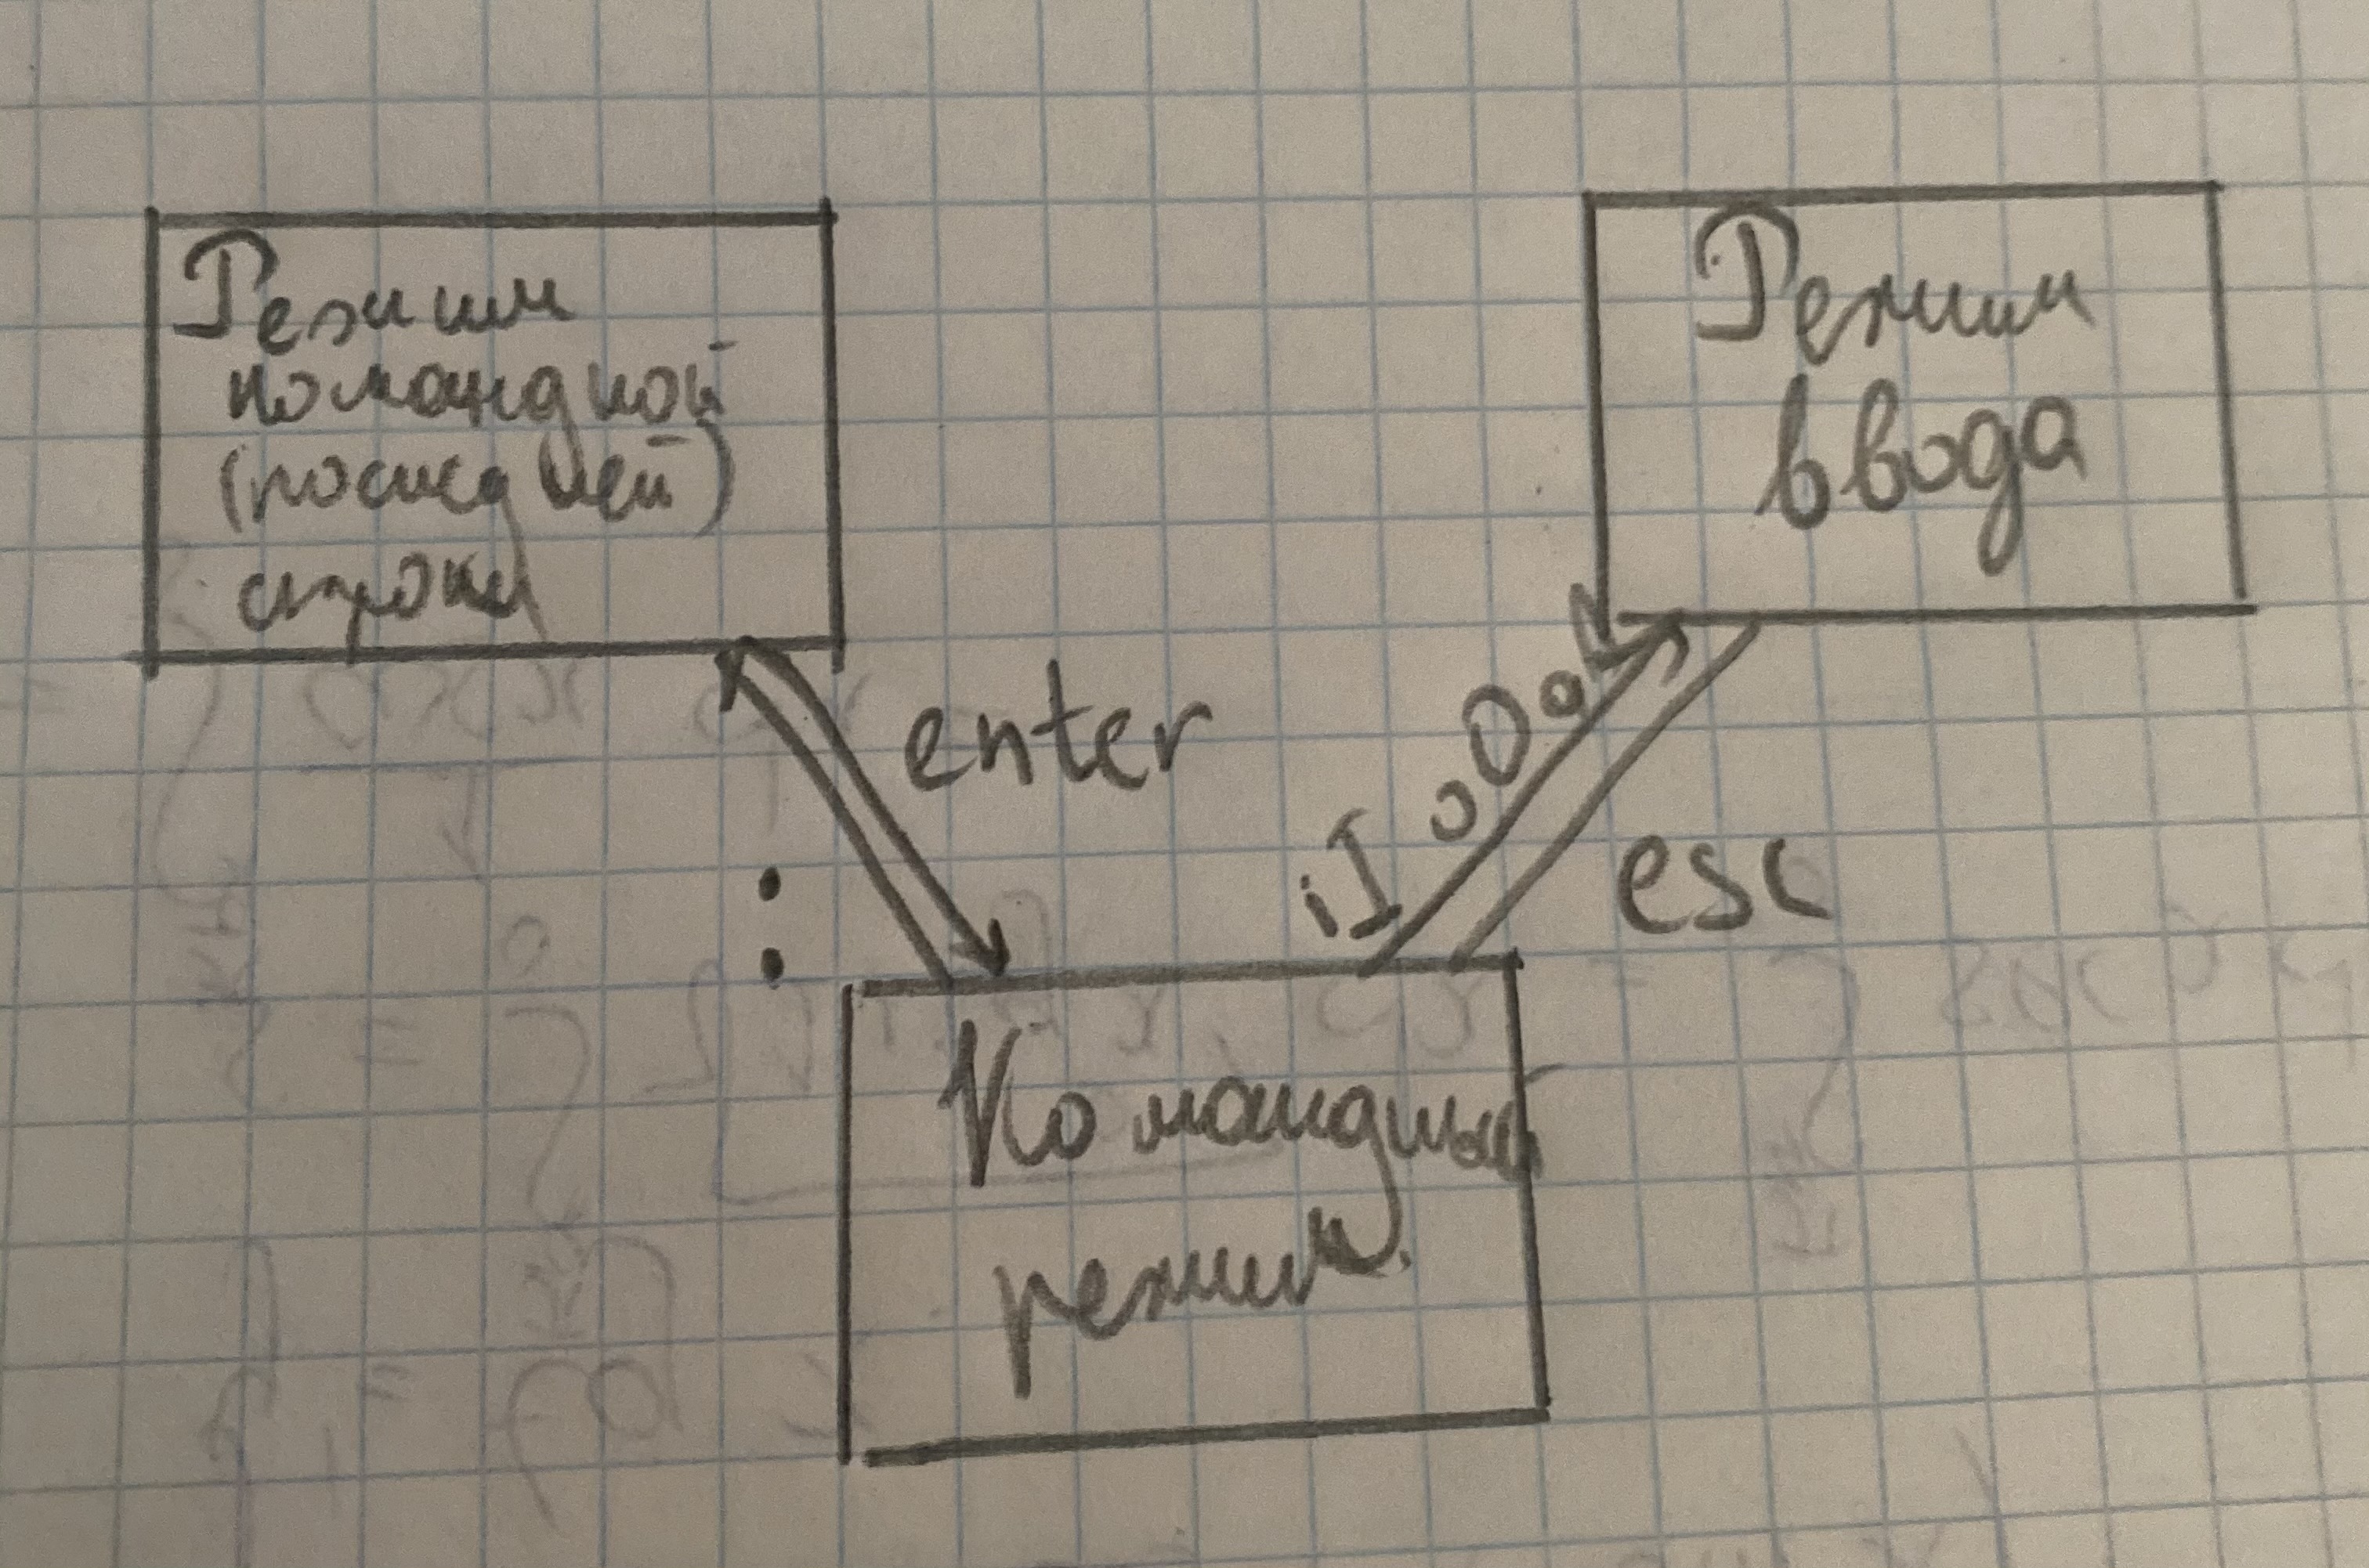 Режим
командной
(последней)
строки
Режим
ввода
enter
:
iI oOaA
esc
Командный
режим.